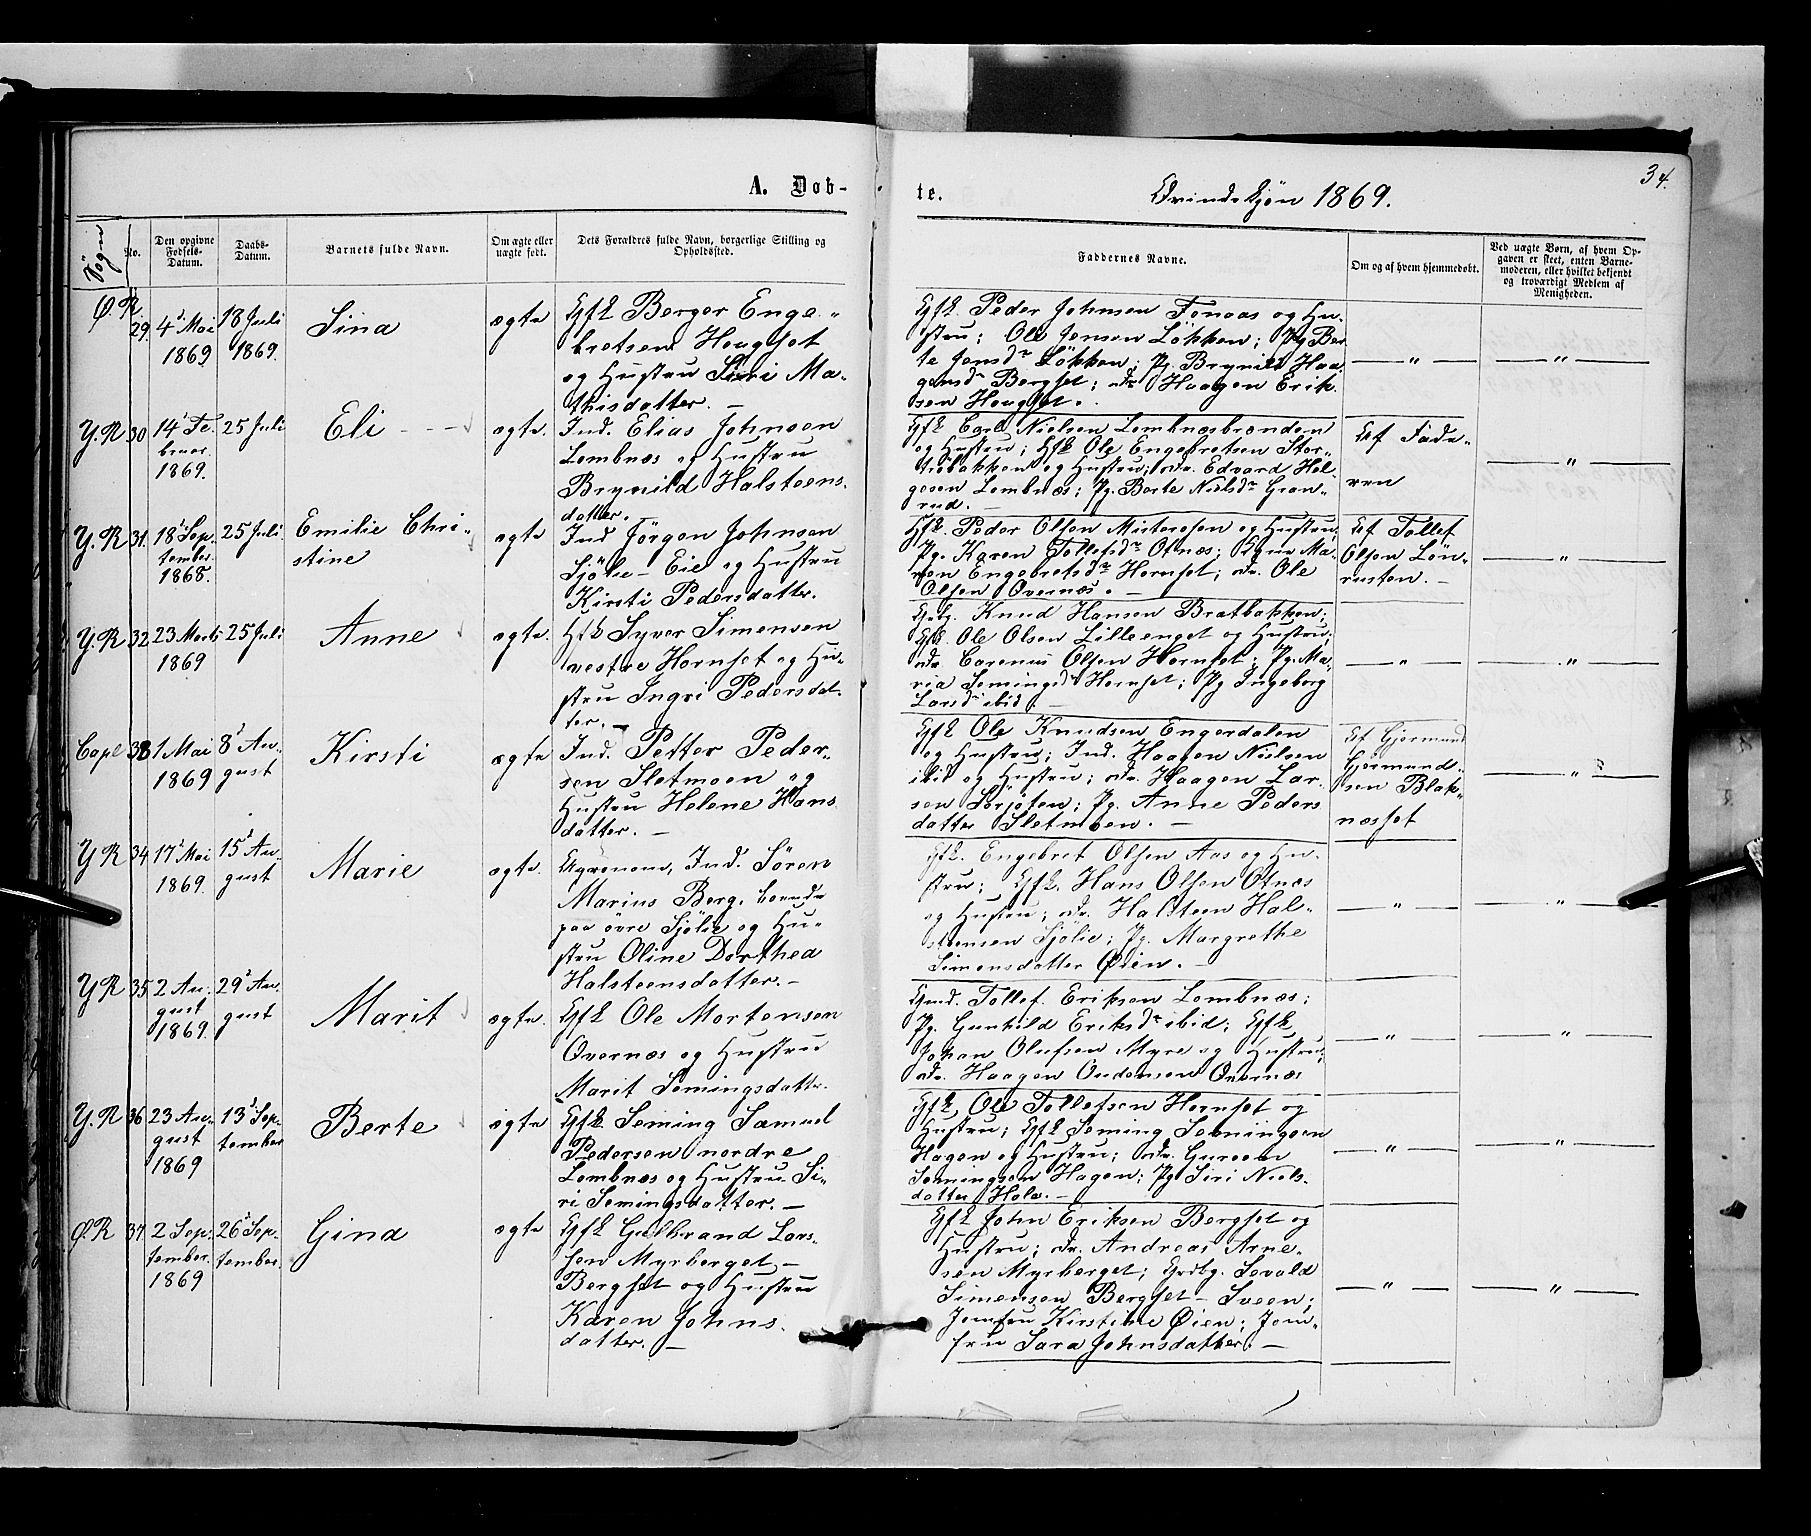 34.
A. Døb-
te.
Qvindekjøn 1869.
Sogn
No.
Den opgivne
Fødsels-
Datum.
Daabs-
Datum.
Barnets fulde Navn.
Om ægte eller
uægte født.
Dets Forældres fulde Navn, borgerlige Stilling og
Opholdssted.
Faddernes Navne.
Om og af hvem hjemmedøbt.
Ved uægte Børn, af hvem Op-
gaven er skeet, enten Barne-
moderen, eller hvilket bekjendt
og troværdigt Medlem af
Menigheden.
Ø.R.
29.
4' Mai
1869
18 Juli
1869.
Sina
ægte
Gfk Berger Enge-
bretsen Haugset
og Hustru Siri Ma-
thisdatter. —
Gfk. Peder Johnsen Fonaas og Hu-
stru; Ole Jensen Løkken; Pg Ber
te Jensdr Løkken; Pg. Brynild Haa-
gensdr Bergset; Uk Haagen Erik-
sen Haugset.
— " —
— " —
Y.R
30
14' Fe-
bruar
1869.
25 Juli
Eli
ægte.
Ind. Elias Johnsen
Lombnæs og Hustru
Brynild Halsteens-
datter. —
Gfk Carl Nielsen Lombnæsbrænden
og Hustru; Gfk Ole Engebretsen Stor-
stibakken og Hustru; Uk. Edvard Hel-
gesen Lombnæs; Pg. Berte Nielsdr Grøn-
rud. —
Af Fade-
ren
— " —
Y.R
31.
18' Sep-
tember
1868.
25 Juli
Emilie Chri-
stine
ægte
Ind Jörgen Johnsen
Sjölie-Eie og Hustru
Kirsti Pedersdatter.
Gfk. Peder Olsen Misterosen og Hustru;
Pg. Karen Tollefsdr Otnæs; Ma-
ren Engebretsdr Hornset; Uk. Ole
Olsen Overnæs. —
Af Tollef
Olsen Løn-
rusten. —
— " —
Y.R
32
23 Marts
1869
25 Juli
Anne
ægte.
Gfk Syver Simensen
vestre Hornset og Hu-
stru Ingri Pedersdat-
ter. —
Knud Hansen Bratbakken;
Gfk. Ole Olsen Lilleenget og Hustru;
Uk Carenus Olsen Hornset; Pg. Ma-
ria Semingsdr Hornset; Pg Ingeborg
Larsdr ibid. —
— " —
— " —
Capl
33
1 Mai
1869
8' Au-
gust
Kirsti
ægte
Ind. Petter Peder-
sen Sletmoen og
Hustru Helene Hans
datter. —
Gfk Ole Knudsen Engerdalen
og Hustru; Ind. Haagen Nielsen
ibid og Hustru; Uk. Haagen Lar-
sen Sørjøten; Pg. Anne Peders
datter Sletmoen. —
Af Gjermund
Gjermund-
sen Blak-
næsset
— " —
Y R
34
17' Mai
1869.
15' Au-
gust
Marie
ægte.
Agronom, Ind. Sören
Marius Berg, boende
paa övre Sjölie og Hu-
stru Oline Dorthea
Halsteensdatter. —
Gfk. Engebret Olsen Aas og Hu-
stru; Gfk. Hans Olsen Otnæs
og Hustru; Uk. Halsteen Hal-
steensen Sjölie; Pg. Margrethe
Simensdatter Øien. —
— " —
— " —
Y R
35
2 Au-
gust
1869.
29' Au-
gust
Marit
ægte.
Gfk Ole Mortensen
Overnæs og Hustru
Marit Semingsdatter.
Tollef Eriksen Lombnæs;
Pg. Gunhild Eriksdr ibid; Gfk
Johan Olufsen Myre og Hustru;
Uk. Haagen Oudensen Overnæs
— " —
— " —
Y.R
36
23 Au-
gust
1869
13' Sep-
tember
Berte
ægte
Gfk Seming Samuel
Pedersen nordre
Lombnæs og Hustru Si-
ri Semingsdatter. —
Gfk Ole Tollefsen Hornset og
Hustru; Gfk Seming Semingsen
Hagen og Hustru; Uk.
Semingsen Hagen; Pg Siri Niels-
datter Hole. —
— " —
— " —
Ø.R
37
2 Sep-
tember
1869
26' Sep-
tember.
Gina
ægte
Gfk Gulbrand Lars-
sen Myrberget-
Bergset og Hustru
Karen Johns-
datter. —
Gfk John Eriksen Bergset og
Hustru; Uk. Andreas Arne-
sen Myrberget; Grdbg. Sevald
Simensen Bergset-Sveen;
Jomfru Kirstine Øien; Jom-
fru Sara Johnsdatter. —
— " —
— " —